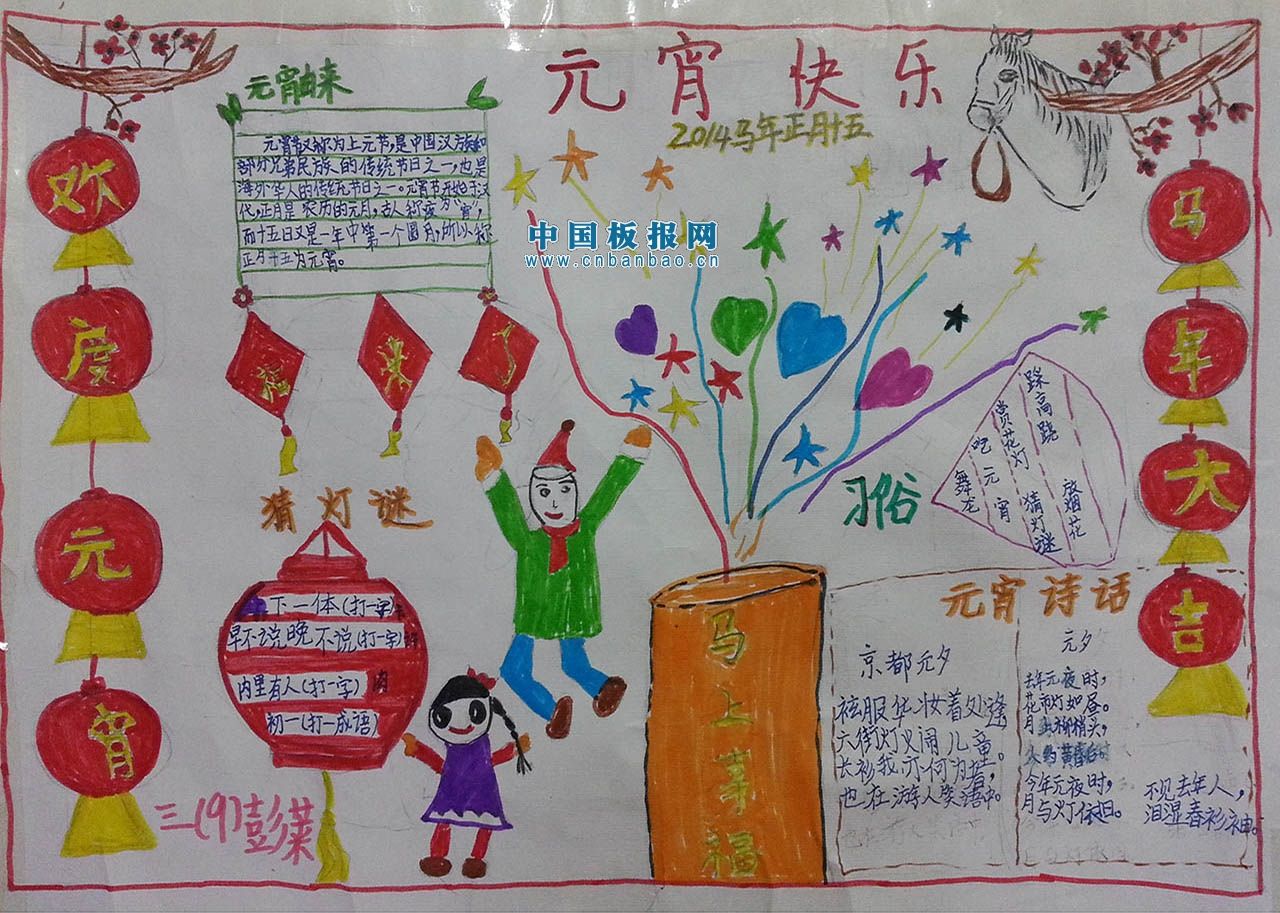 元宵快乐
2014马年正月十五
欢度元宵
马年大吉
元宵由来
元宵节又称为上元节,是中国汉族和
部分兄弟民族的传统节日之一,也是
海外华人的传统节日之一。元宵节开始于汉
代,正月是农历的元月,古人称夜为"宵",
而十五日又是一年中第一个圆月,所以称
正月十五为元宵。
中国板报网
www.cnbanbao.cn
福
来
了
猜灯谜
下一体(打一字)
早不说晚不说(打一字)
内里有人(打一字) 肉
初一(打一成语)
三(9)彭菜
马上幸福
习俗
踩高跷
放烟花
赏花灯
猜灯谜
吃元宵
舞龙
元宵诗话
京都元夕
袨服华妆着处逢
六街灯火闹儿童。
长衫我亦何为者,
也在游人笑语中。
元夕
去年元夜时,
花市灯如昼。
月 柳梢头,
人约黄昏后。
今年元夜时,
月与灯依旧。
不见去年人,
泪湿春衫袖。